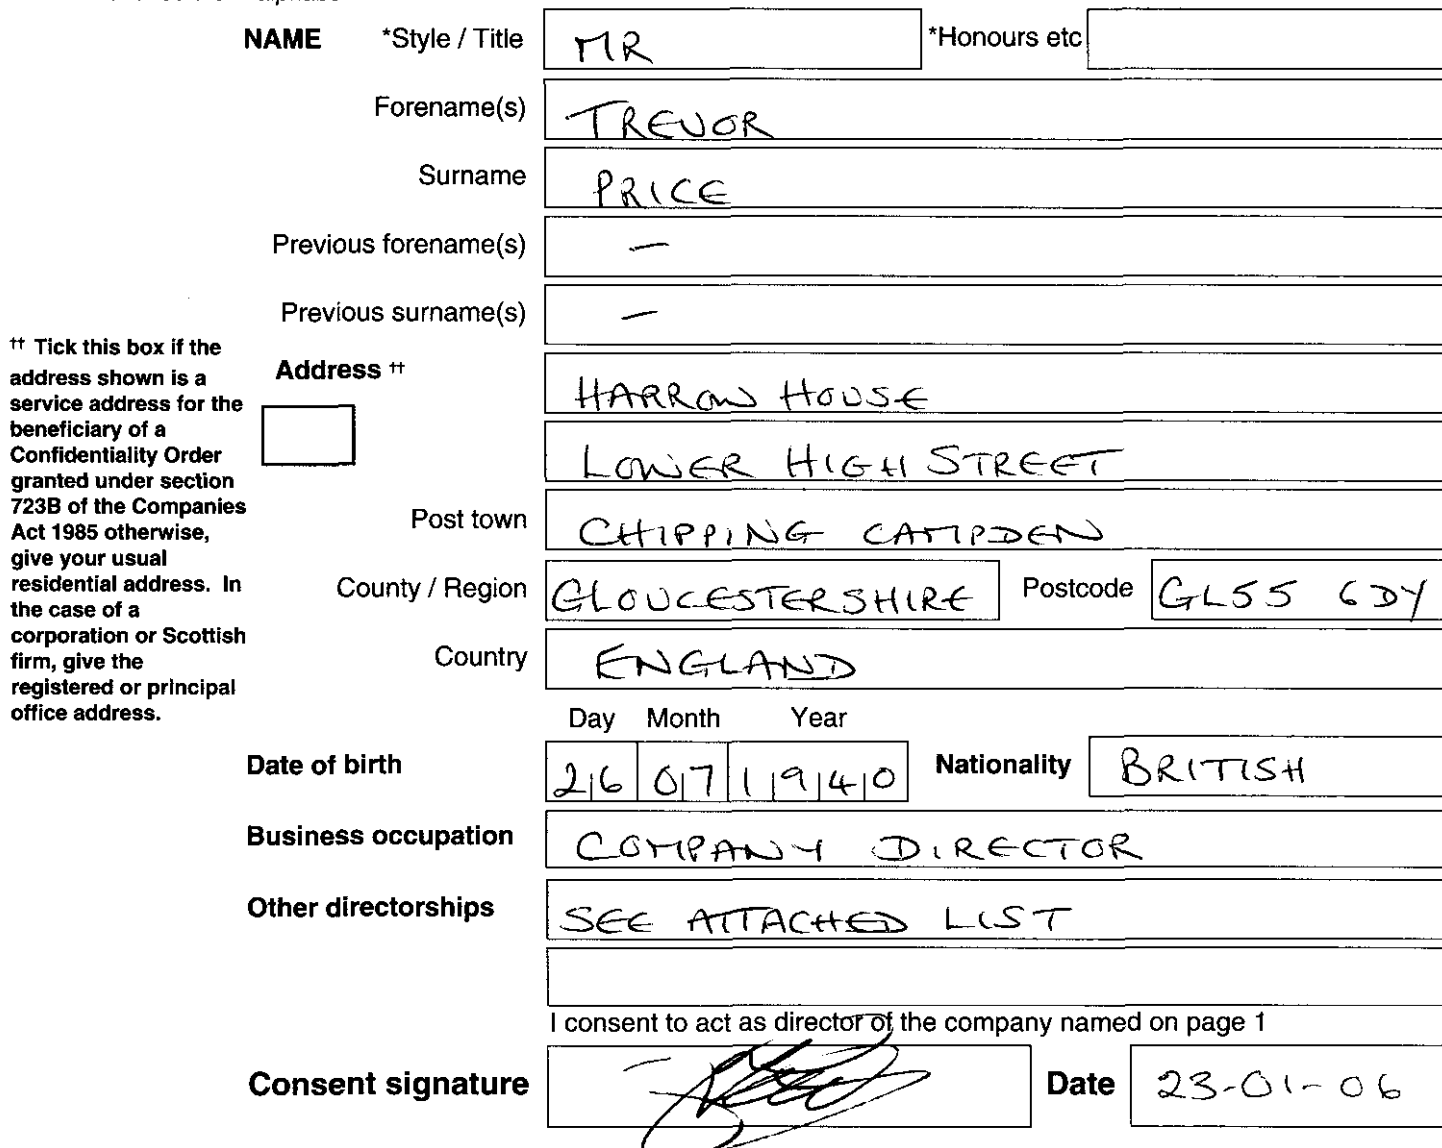 NAME *Style / Title MR *Honours etc
Forename(s) TREVOR
Surname PRICE
Previous forename(s) —
Previous surname(s) —
†† Tick this box if the
address shown is a
service address for the
beneficiary of a
Confidentiality Order
granted under section
723B of the Companies
Act 1985 otherwise,
give your usual
residential address. In
the case of a
corporation or Scottish
firm, give the
registered or principal
office address.
Address ††
HARROW HOUSE
LOWER HIGH STREET
Post town CHIPPING CAMPDEN
County / Region GLOUCESTERSHIRE Postcode GL55 6DY
Country ENGLAND
Day Month Year
Date of birth 26 07 1940 Nationality BRITISH
Business occupation COMPANY DIRECTOR
Other directorships SEE ATTACHED LIST
I consent to act as director of the company named on page 1
Consent signature Date 23-01-06